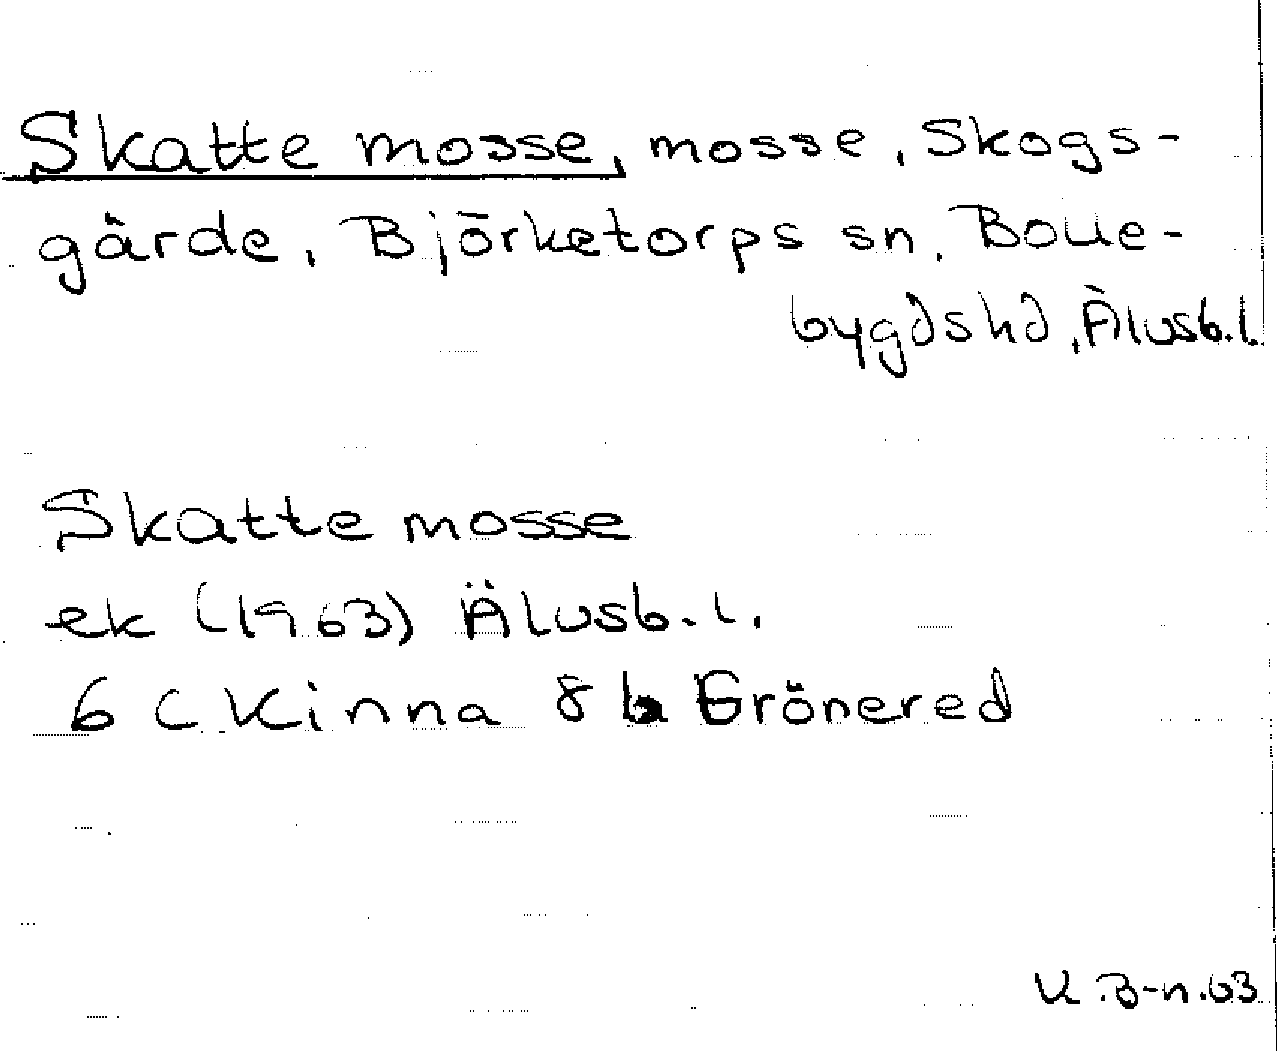 Skatte mosse, mosse, Skogs-
gärde, Björketorps sn, Bolle-
bygdshd, Älvsb.l.
Skatte mosse
ek (1963) Älvsb.l.
6 C Kinna 8 b Grönered
K.B-n.63